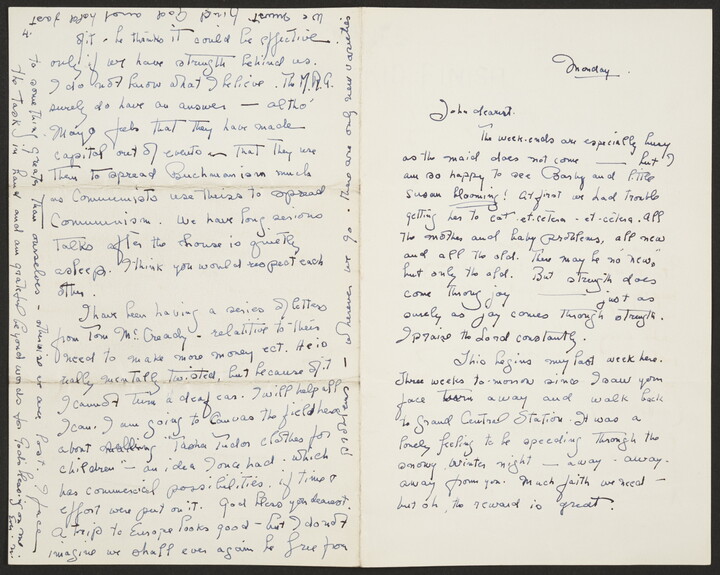 Monday.
John dearest.
The week-ends are especially busy
as the maid does not come — but I
am so happy to see Barby and little
Susan blooming! At first we had trouble
getting her to eat - et-cetera - et-cetera. All
the mother and baby problems, all new
and all the old. There may be no "new",
but only the old. But strength does
come through joy — just as
surely as joy comes through strength.
I praise the Lord constantly.
This begins my last week here.
Three weeks to-morrow since I saw your
face turn away and walk back
to Grand Central Station. It was a
lonely feeling to be speeding through the
snowy winter night — away - away -
away from you. Much faith we need —
but oh, the reward is great.
of it - he thinks it could be effective
only if we have strength behind us.
I do not know what I believe. The M.R.A.
surely do have an answer — altho'
Mayo feels that they have made
capital out of events — that they use
them to spread Buchmanism much
as Communists use theirs to spread
Communism. We have long serious
talks after the house is quietly
asleep. I think you would respect each
other.
I have been having a series of letters
from Tom McCready - relative to their
need to make more money ect. He is
really mentally twisted, but because of it
I cannot turn a deaf ear. I will help all
I can. I am going to canvas the field here
about "Tasha Tudor clothes for
children" — an idea I once had. Which
has commercial possibilities, if time &
effort were put on it. God bless you dearest.
A trip to Europe looks good — but I do not
imagine we shall ever again be free from
problems — wherever we go. There are only new varieties
We must find God and hold fast
to something greater than ourselves — otherwise we are lost. I face
the task in hand and am grateful beyond words for God's blessing on me